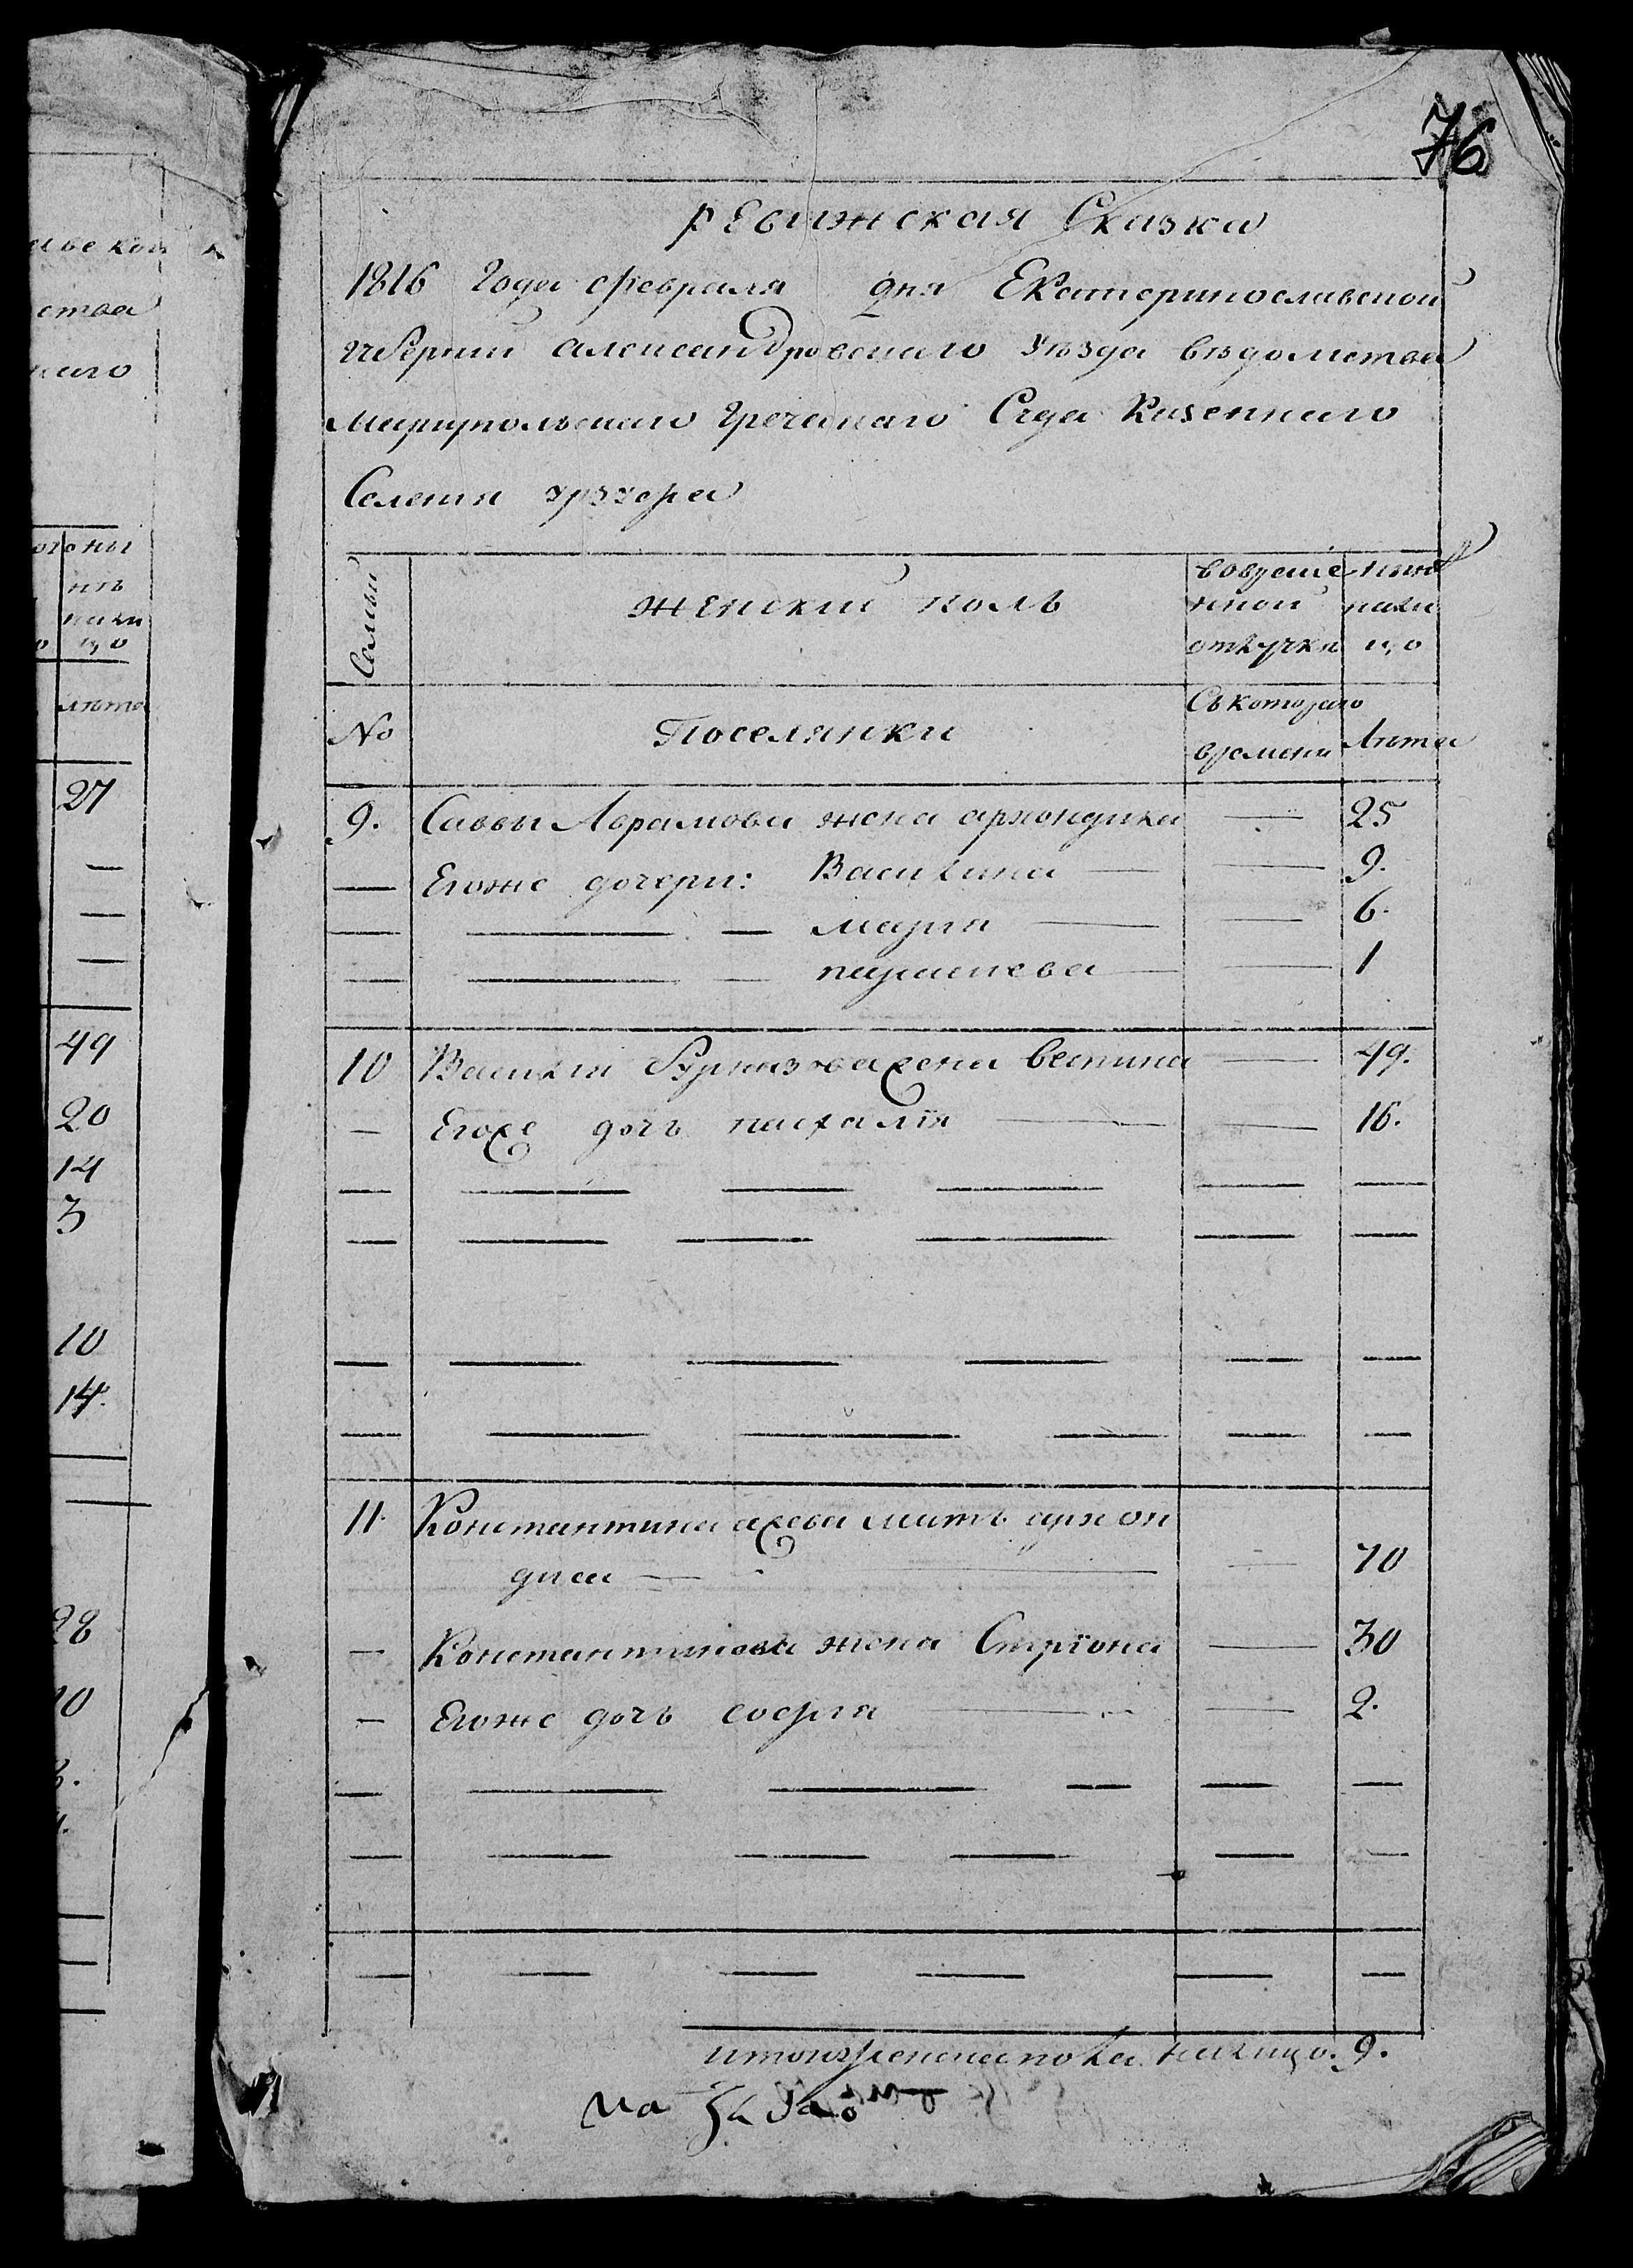 76
ревижская Сказка
1816 Года февраля дня Екатеринославской
губернии александровскаго уезда ведомства
мариупольскаго Греческаго Суда Казеннаго
Селения урзуфа
Семьи
женский полъ
вовреме
нной
отлучки
ныне
нали
цо
№
Поселянки
Съкотораго
времени
Лѣта
9. Саввы Аврамова жена архондика — 25
— Егоже дочери: Василина — — 9.
— — — мария — — 6.
— — — парашева — — 1
10 Василия жена — 49.
— Егоже дочь наталїя — — 16.
— — — — — —
— — — — — —
— — — — — —
— — — — — —
11. Константина мать архон
дика — — — 70
— Константинова жена Стрїона — 30
— Егоже дочь софия — — 2.
— — — — — —
— — — — — —
— — — — — —
итого женска пола налицо. 9.
ские
ства
наго
нѣ
нали
цо
лѣта
27
—
—
—
49
20
14
3
10
14.
28